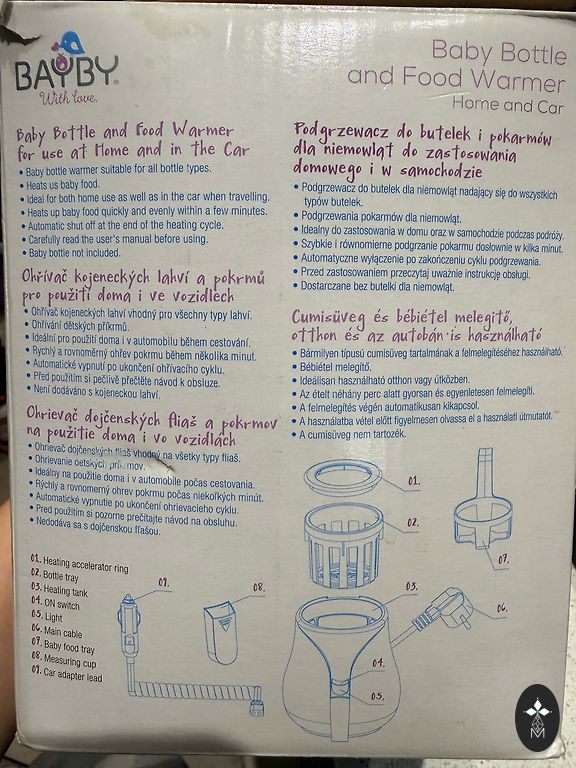 BAYBY®
With love.
Baby Bottle
and Food Warmer
Home and Car
Baby Bottle and Food Warmer
for use at Home and in the Car
• Baby bottle warmer suitable for all bottle types.
• Heats us baby food.
• Ideal for both home use as well as in the car when travelling.
• Heats up baby food quickly and evenly within a few minutes.
• Automatic shut off at the end of the heating cycle.
• Carefully read the user's manual before using.
• Baby bottle not included.
Ohřívač kojeneckých lahví a pokrmů
pro použití doma i ve vozidlech
• Ohřívač kojeneckých lahví vhodný pro všechny typy lahví.
• Ohřívání dětských příkrmů.
• Ideální pro použití doma i v automobilu během cestování.
• Rychlý a rovnoměrný ohřev pokrmu během několika minut.
• Automatické vypnutí po ukončení ohřívacího cyklu.
• Před použitím si pečlivě přečtěte návod k obsluze.
• Není dodáváno s kojeneckou lahví.
Ohrievač dojčenských fliaš a pokrmov
na použitie doma i vo vozidlách
• Ohrievač dojčenských fliaš vhodný na všetky typy fliaš.
• Ohrievanie detských príkrmov.
• Ideálny na použitie doma i v automobile počas cestovania.
• Rýchly a rovnomerný ohrev pokrmu počas niekoľkých minút.
• Automatické vypnutie po ukončení ohrievacieho cyklu.
• Pred použitím si pozorne prečítajte návod na obsluhu.
• Nedodáva sa s dojčenskou fľašou.
Podgrzewacz do butelek i pokarmów
dla niemowląt do zastosowania
domowego i w samochodzie
• Podgrzewacz do butelek dla niemowląt nadający się do wszystkich
typów butelek.
• Podgrzewania pokarmów dla niemowląt.
• Idealny do zastosowania w domu oraz w samochodzie podczas podróży.
• Szybkie i równomierne podgrzanie pokarmu dosłownie w kilka minut.
• Automatyczne wyłączenie po zakończeniu cyklu podgrzewania.
• Przed zastosowaniem przeczytaj uważnie instrukcję obsługi.
• Dostarczane bez butelki dla niemowląt.
Cumisüveg és bébiétel melegítő,
otthon és az autóban is használható
• Bármilyen típusú cumisüveg tartalmának a felmelegítéséhez használható.
• Bébiétel melegítő.
• Ideálisan használható otthon vagy útközben.
• Az ételt néhány perc alatt gyorsan és egyenletesen felmelegíti.
• A felmelegítés végén automatikusan kikapcsol.
• A használatba vétel előtt figyelmesen olvassa el a használati útmutatót.
• A cumisüveg nem tartozék.
01. Heating accelerator ring
02. Bottle tray
03. Heating tank
04. ON switch
05. Light
06. Main cable
07. Baby food tray
08. Measuring cup
09. Car adapter lead
09.
08.
01.
02.
07.
03.
06.
04.
05.
M